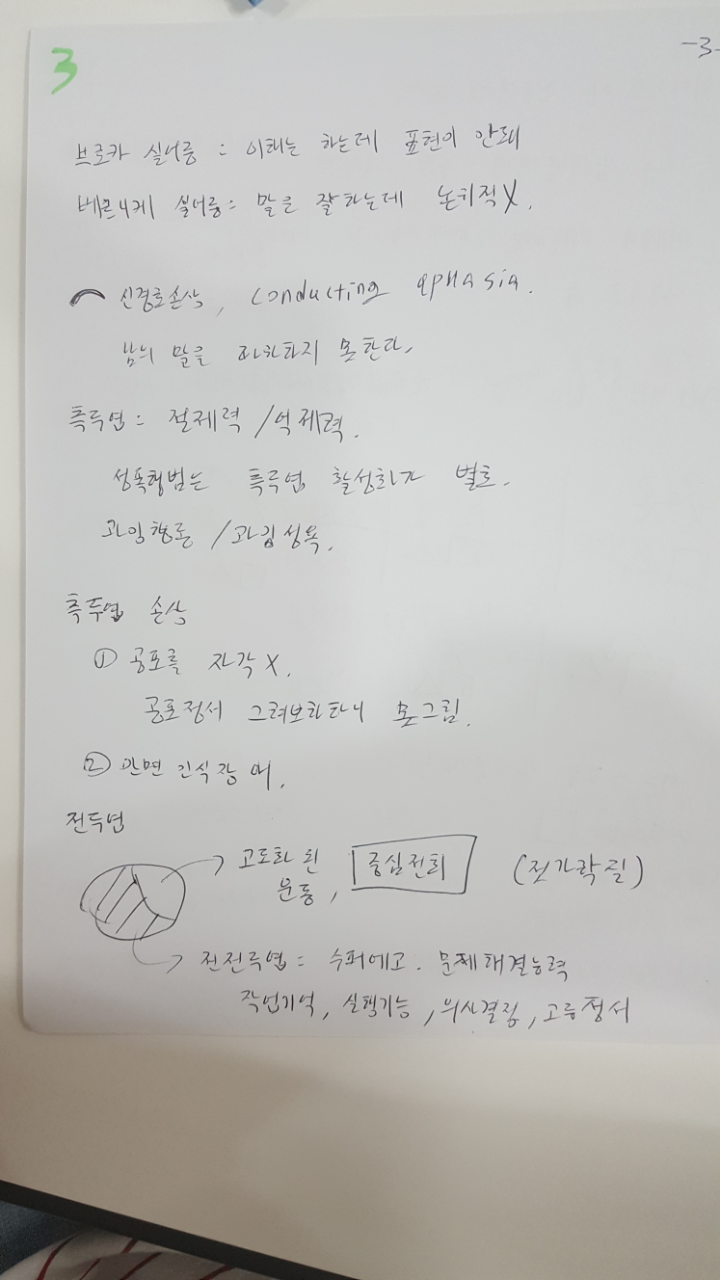 3
-3-
브로카 실어증 : 이해는 하는데 표현이 안돼
베르니케 실어증 : 말은 잘하는데 논리적X.
신경로손상, conducting aphasia.
남의 말을 따라하지 못한다.
측두엽 : 절제력 / 억제력.
성폭행범은 측두엽 활성화가 별로.
과잉행동 / 과잉성욕.
측두엽 손상
① 공포를 자각X.
공포정서 그려보라하니 못그림.
② 안면 인식장애.
전두엽
고도화 된
운동, 중심전회 (젓가락질)
전전두엽 = 수퍼에고. 문제해결능력
작업기억, 실행기능, 의사결정, 고등정서